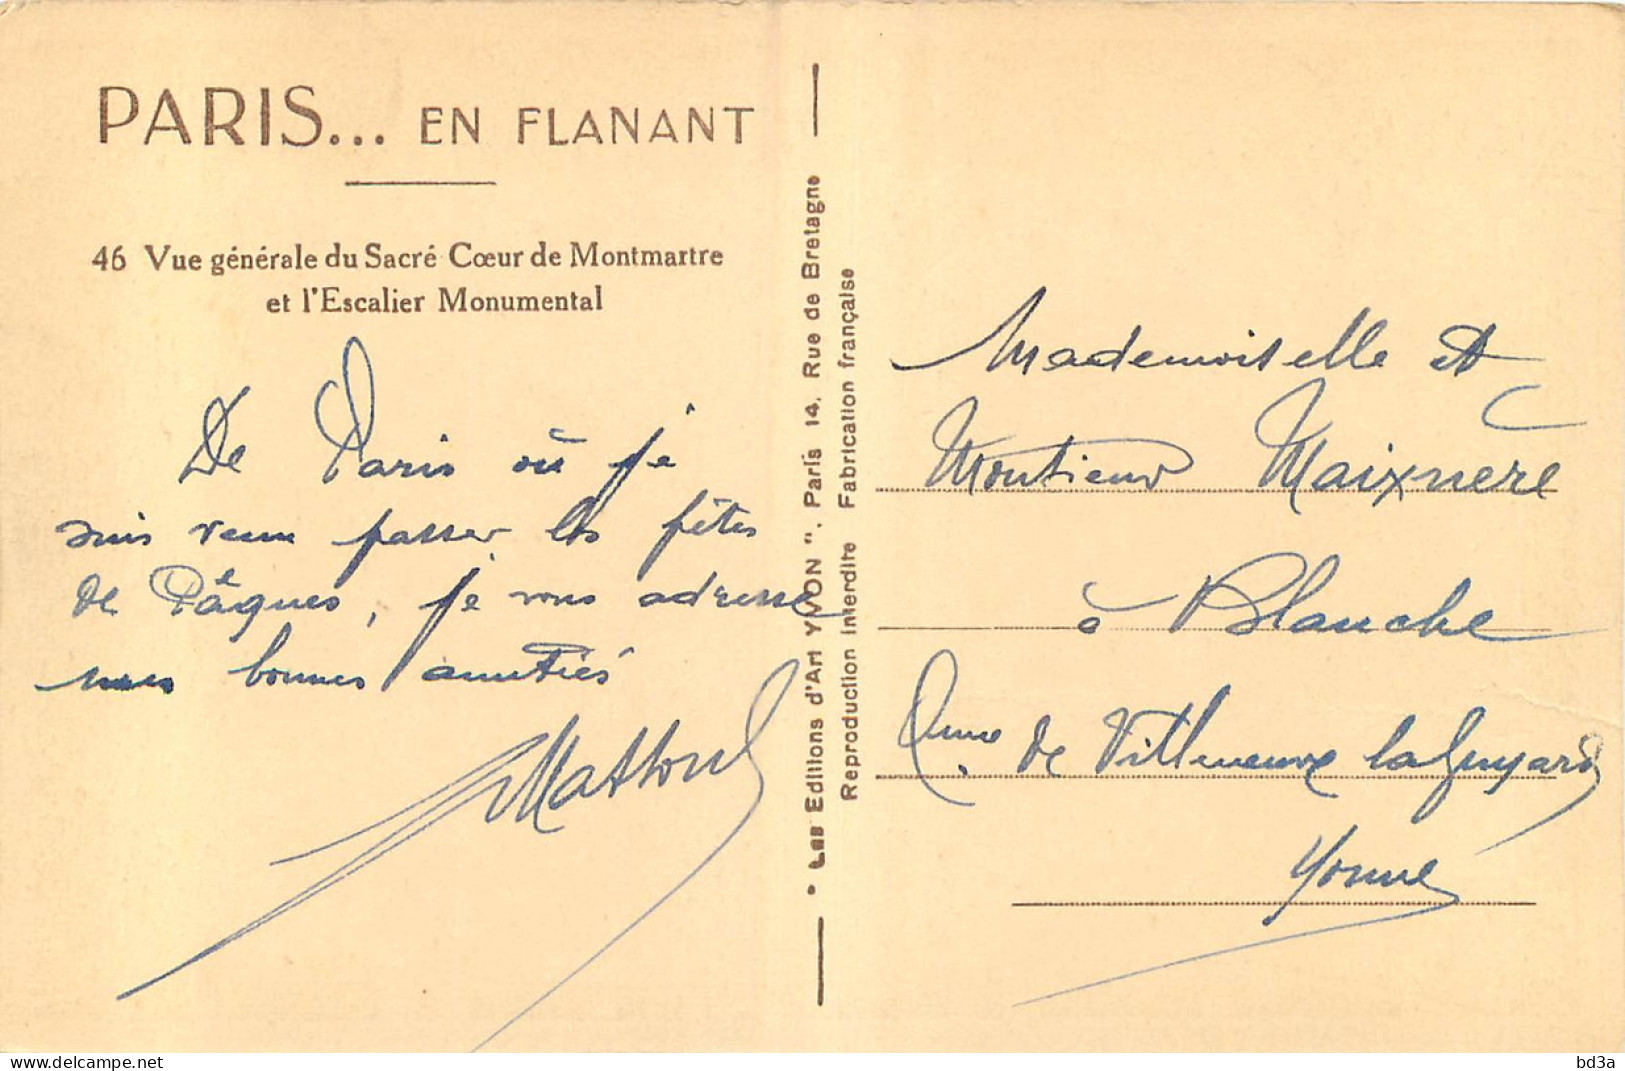 PARIS... EN FLANANT
46 Vue générale du Sacré Cœur de Montmartre
et l'Escalier Monumental
De Paris où je
suis venu passer les fêtes
de Pâques, je vous adresse
mes bonnes amitiés
" Les Editions d'Art YVON ". Paris 14, Rue de Bretagne
Reproduction interdite Fabrication française
Mademoiselle et
Monsieur Maixnere
à Blanche
de Villeneuve la Guyard
Yonne
www.delcampe.net
bd3a